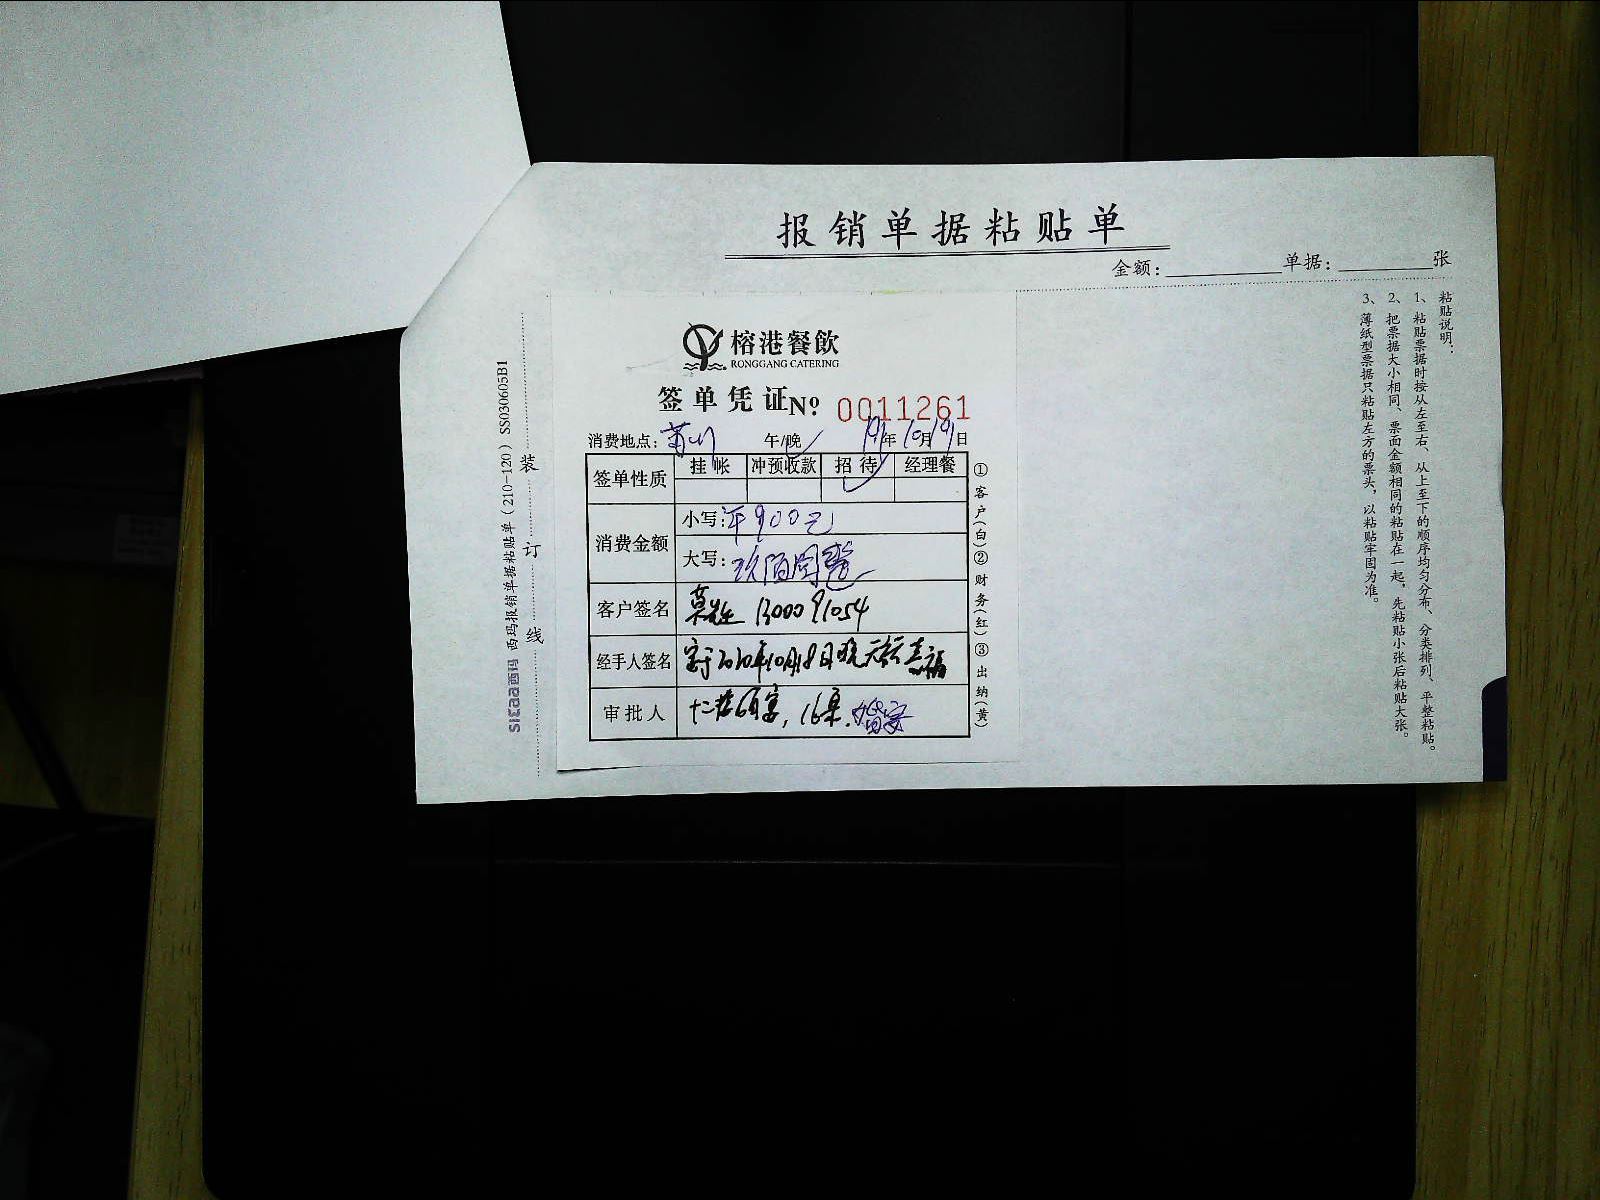 报销单据粘贴单
金额: 单据: 张
榕港餐飲
RONGGANG CATERING
签单凭证 No 0011261
消费地点: 莆川 午/晚 19年10月19日
签单性质 挂帐 冲预收款 招待 经理餐
消费金额 小写: 900元
大写: 玖佰圆整
客户签名 莫先生 1300091054
经手人签名 2020年10月18日晚
审批人 16桌. 婚宴
①客户(白)②财务(红)③出纳(黄)
粘贴说明:
1、粘贴票据时按从左至右、从上至下的顺序均匀分布、分类排列、平整粘贴。
2、把票据大小相同、票面金额相同的粘贴在一起,先粘贴小张后粘贴大张。
3、薄纸型票据只粘贴左方的票头,以粘贴牢固为准。
装订线
sicaa西玛 西玛报销单据粘贴单(210-120)SS030605B1